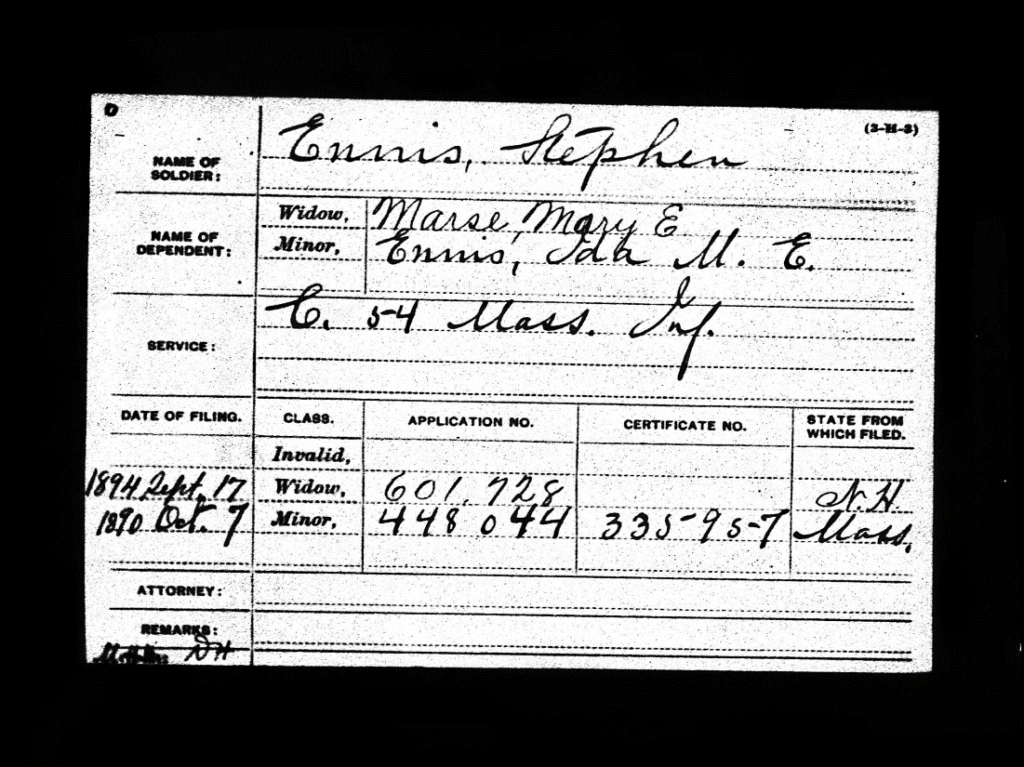 (3-H-3)
NAME OF SOLDIER: Ennis, Stephen
NAME OF DEPENDENT: Widow, Marse, Mary E
Minor, Ennis, Ida M. E.
SERVICE: C. 54 Mass. Inf.
DATE OF FILING. CLASS. APPLICATION NO. CERTIFICATE NO. STATE FROM WHICH FILED.
Invalid,
1894 Sept. 17 Widow, 601.728 N.H.
1890 Oct. 7 Minor, 448 044 335957 Mass.
ATTORNEY:
REMARKS: